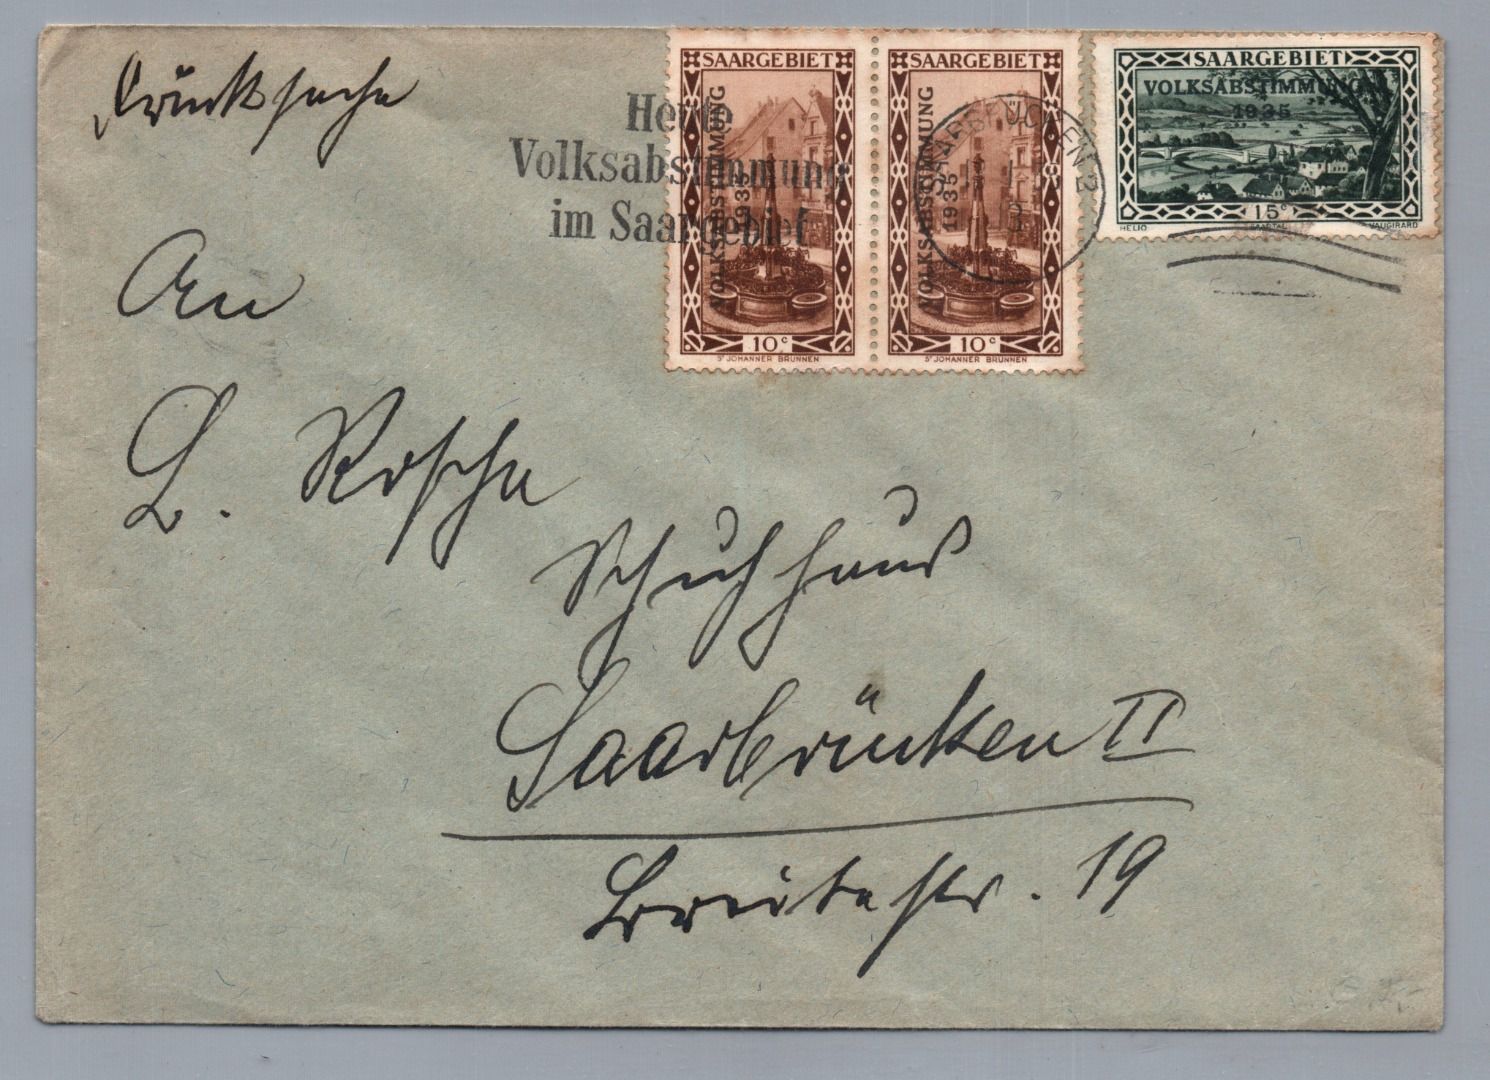 Drucksache
SAARGEBIET
VOLKSABSTIMMUNG
1935
10 c
ST JOHANNER BRUNNEN
SAARGEBIET
VOLKSABSTIMMUNG
1935
10 c
ST JOHANNER BRUNNEN
SAARGEBIET
VOLKSABSTIMMUNG
1935
15 c
HELIO SAARTAL VAUGIRARD
Heute
Volksabstimmung
im Saargebiet
SAARBRÜCKEN 2
An
L. Rosche
Schuhhaus
Saarbrücken II
Breitestr. 19